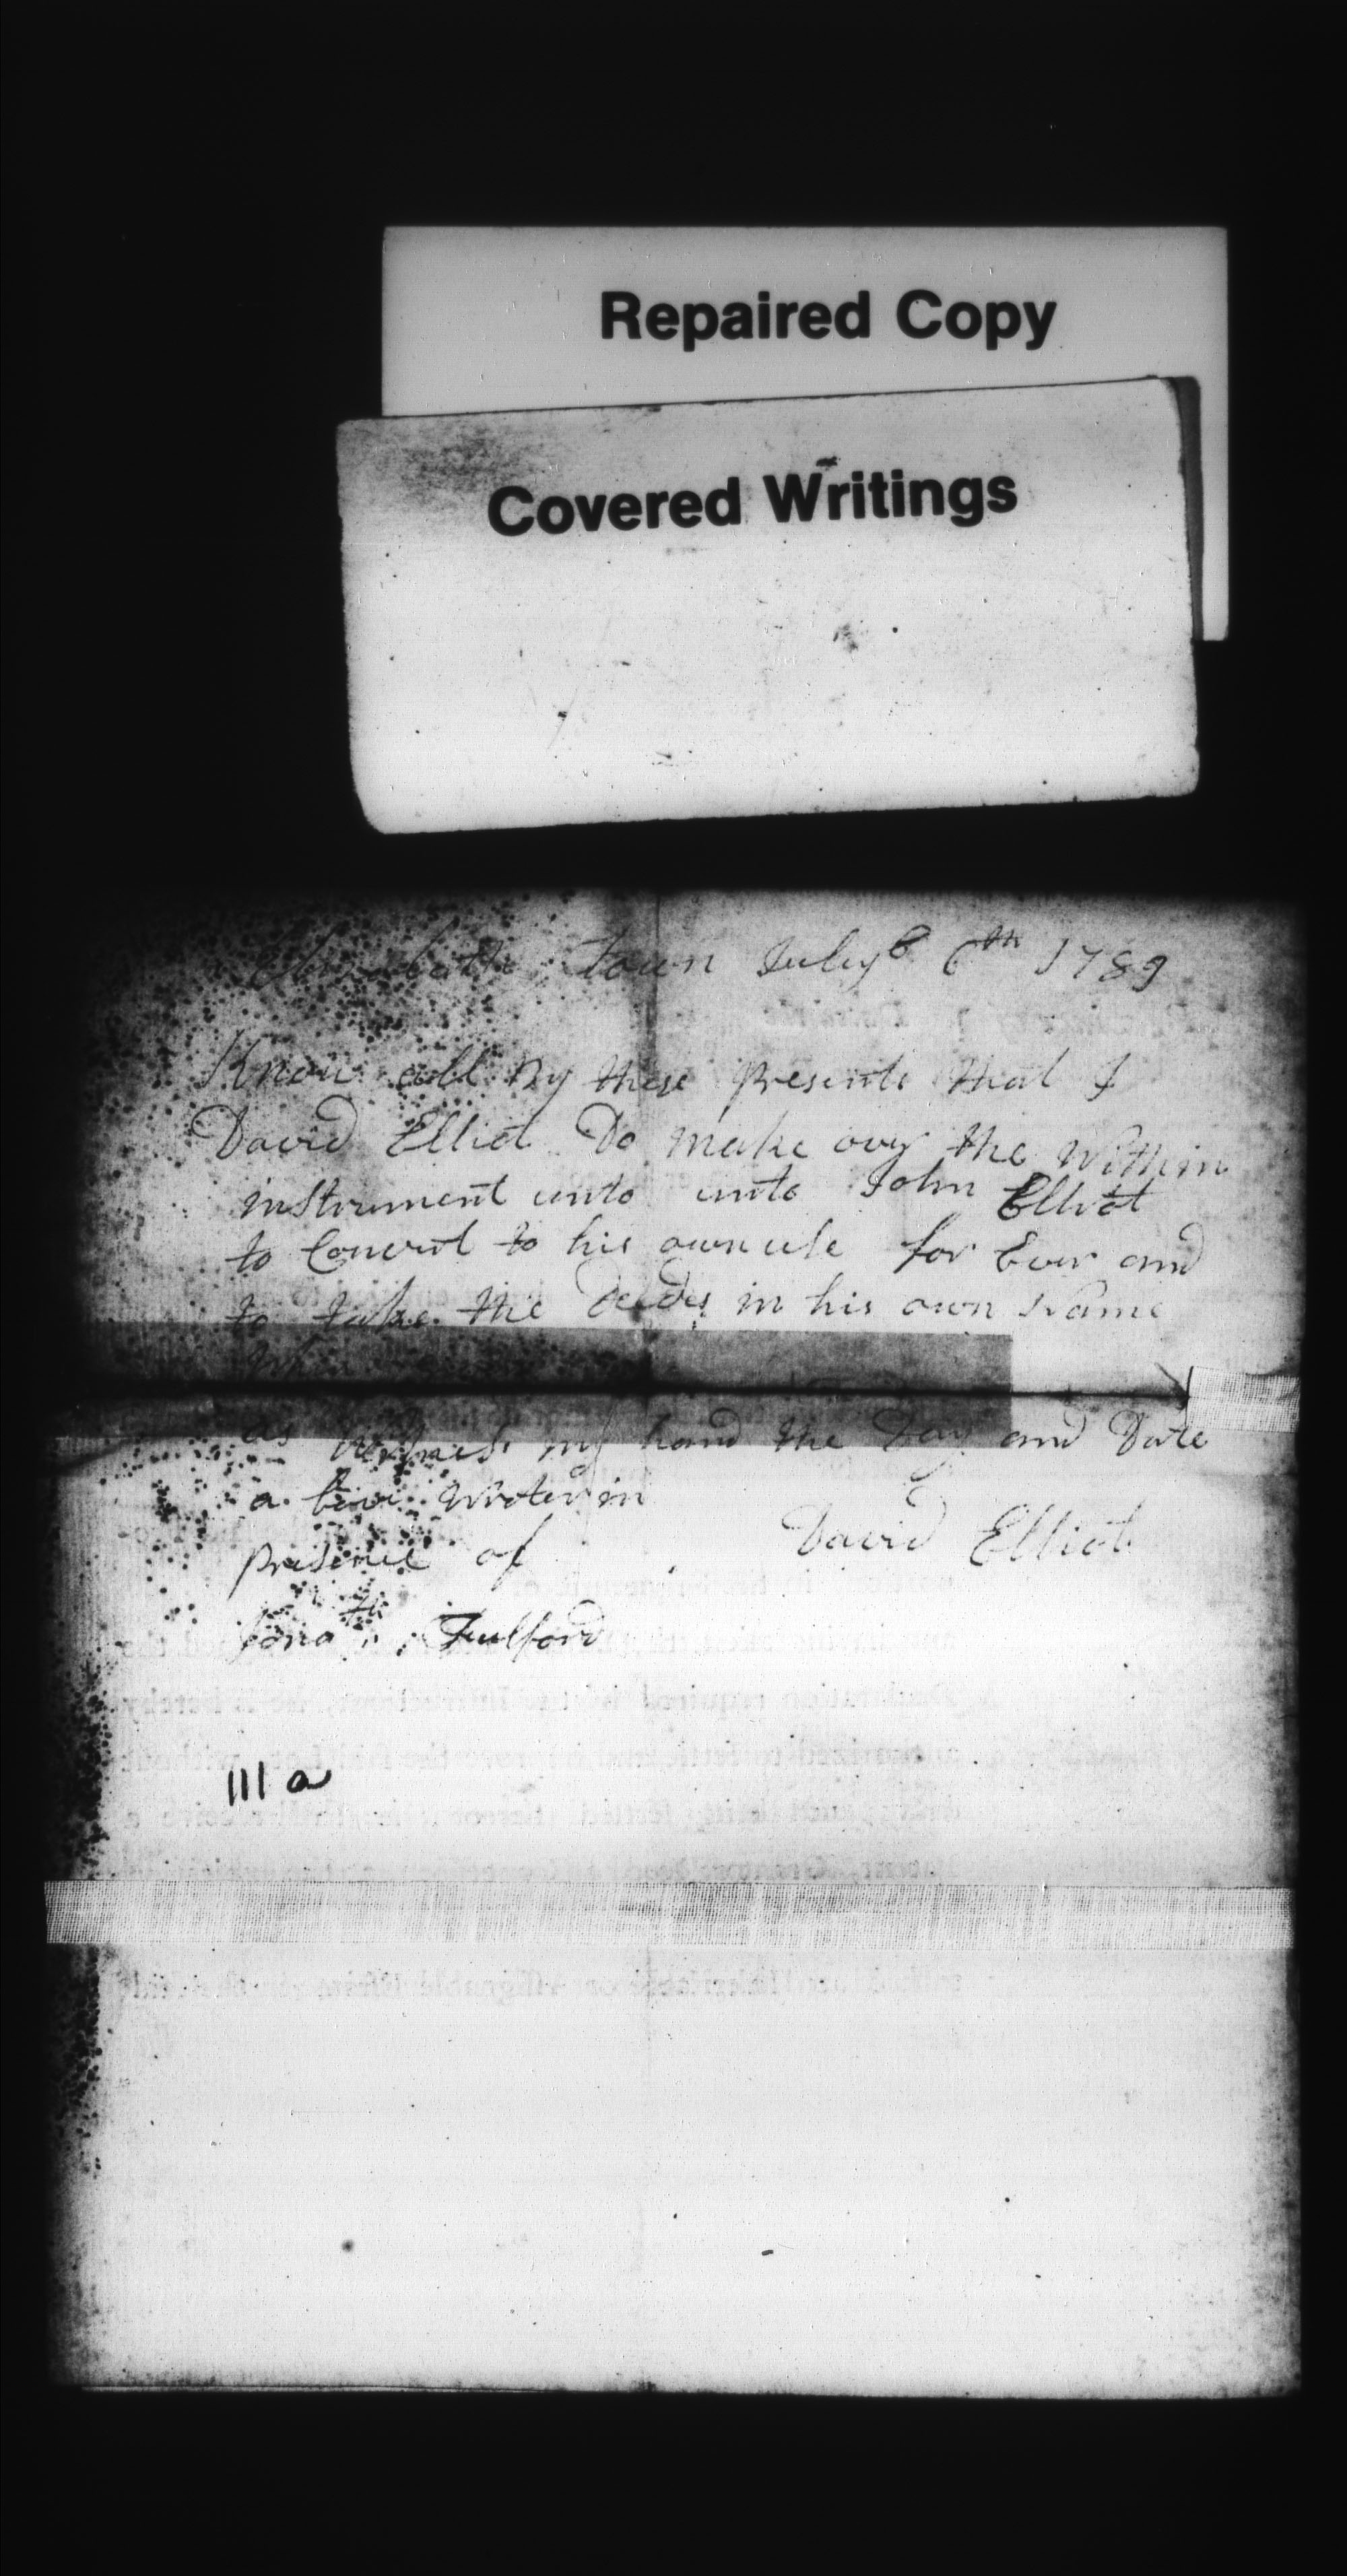 Repaired Copy
Covered Writings
Elizabeth Town July 6th 1789
Know all By these presents that I
David Elliot Do make over the within
instrument unto unto John Elliot
to Convert to his own use for Ever and
to take the Deeds in his own Name
When
as Witness my hand the Day and Date
a bove Wroten in
presence of David Elliot
Jonath. Fulford
111a